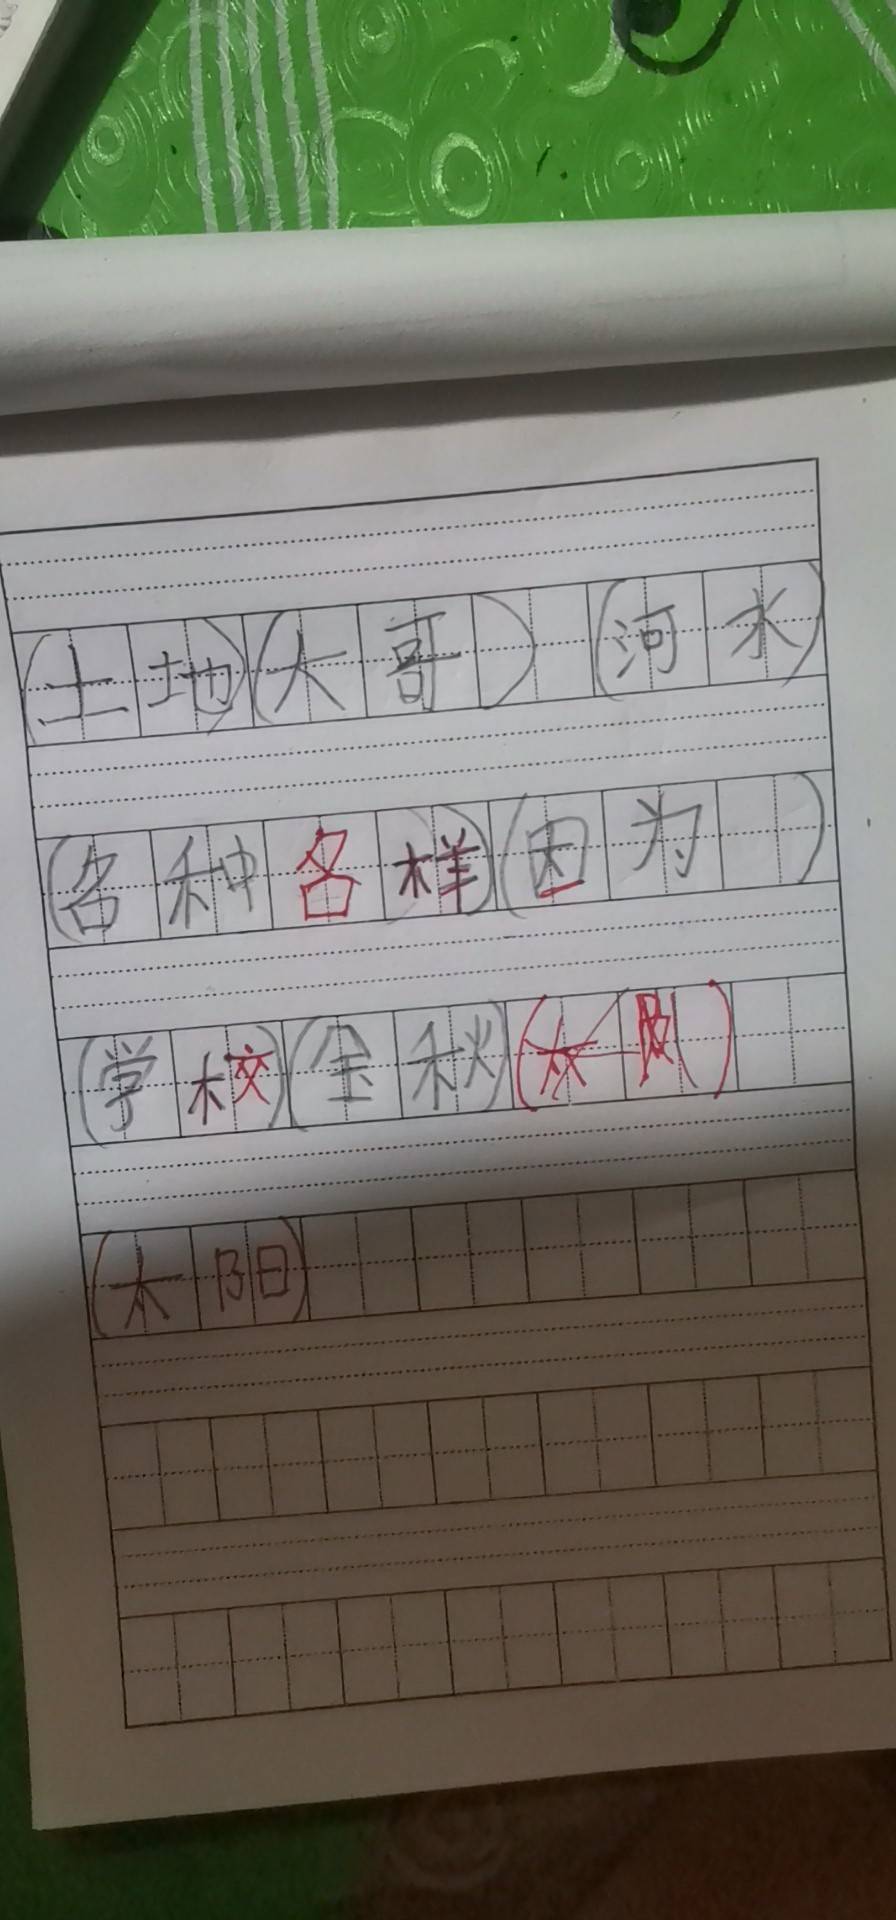 (土地)(大哥) (河水)
(各种各样)(因为 )
(学校)(金秋)( )
(太阳)